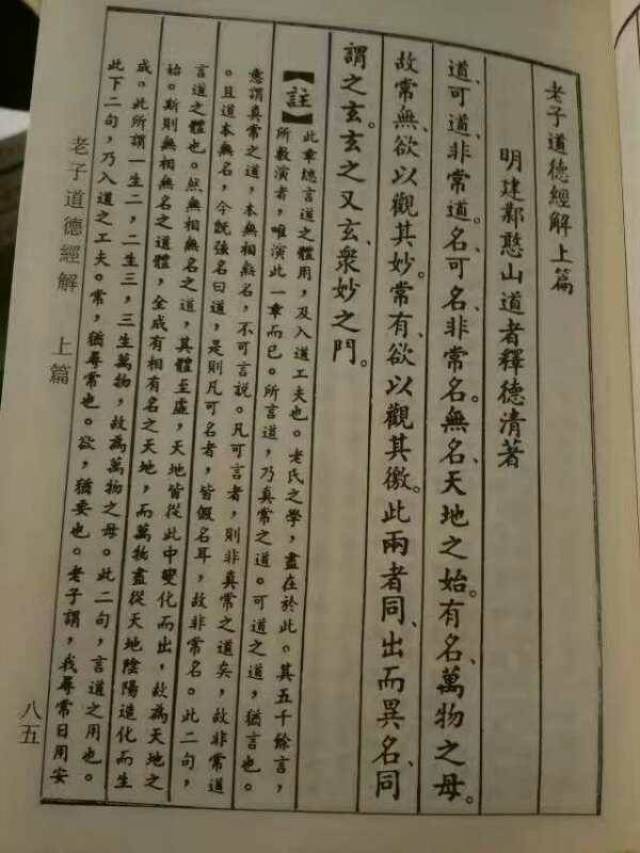 老子道德經解上篇
明建鄴憨山道者釋德清著
道、可道、非常道。名、可名、非常名。無名、天地之始。有名、萬物之母。
故常無、欲以觀其妙。常有、欲以觀其徼。此兩者同、出而異名、同
謂之玄。玄之又玄、衆妙之門。
【註】此章總言道之體用，及入道工夫也。老氏之學，盡在於此。其五千餘言，
所敷演者，唯演此一章而已。所言道，乃真常之道。可道之道，猶言也。
意謂真常之道，本無相無名，不可言說。凡可言者，則非真常之道矣，故非常道
。且道本無名，今既強名曰道，是則凡可名者，皆假名耳，故非常名。此二句，
言道之體也。然無相無名之道，其體至虛，天地皆從此中變化而出，故為天地之
始。斯則無相無名之道體，全成有相有名之天地，而萬物盡從天地陰陽造化而生
成。此所謂一生二，二生三，三生萬物，故為萬物之母。此二句，言道之用也。
此下二句，乃入道之工夫。常，猶尋常也。欲，猶要也。老子謂，我尋常日用安
老子道德經解　上篇
八五